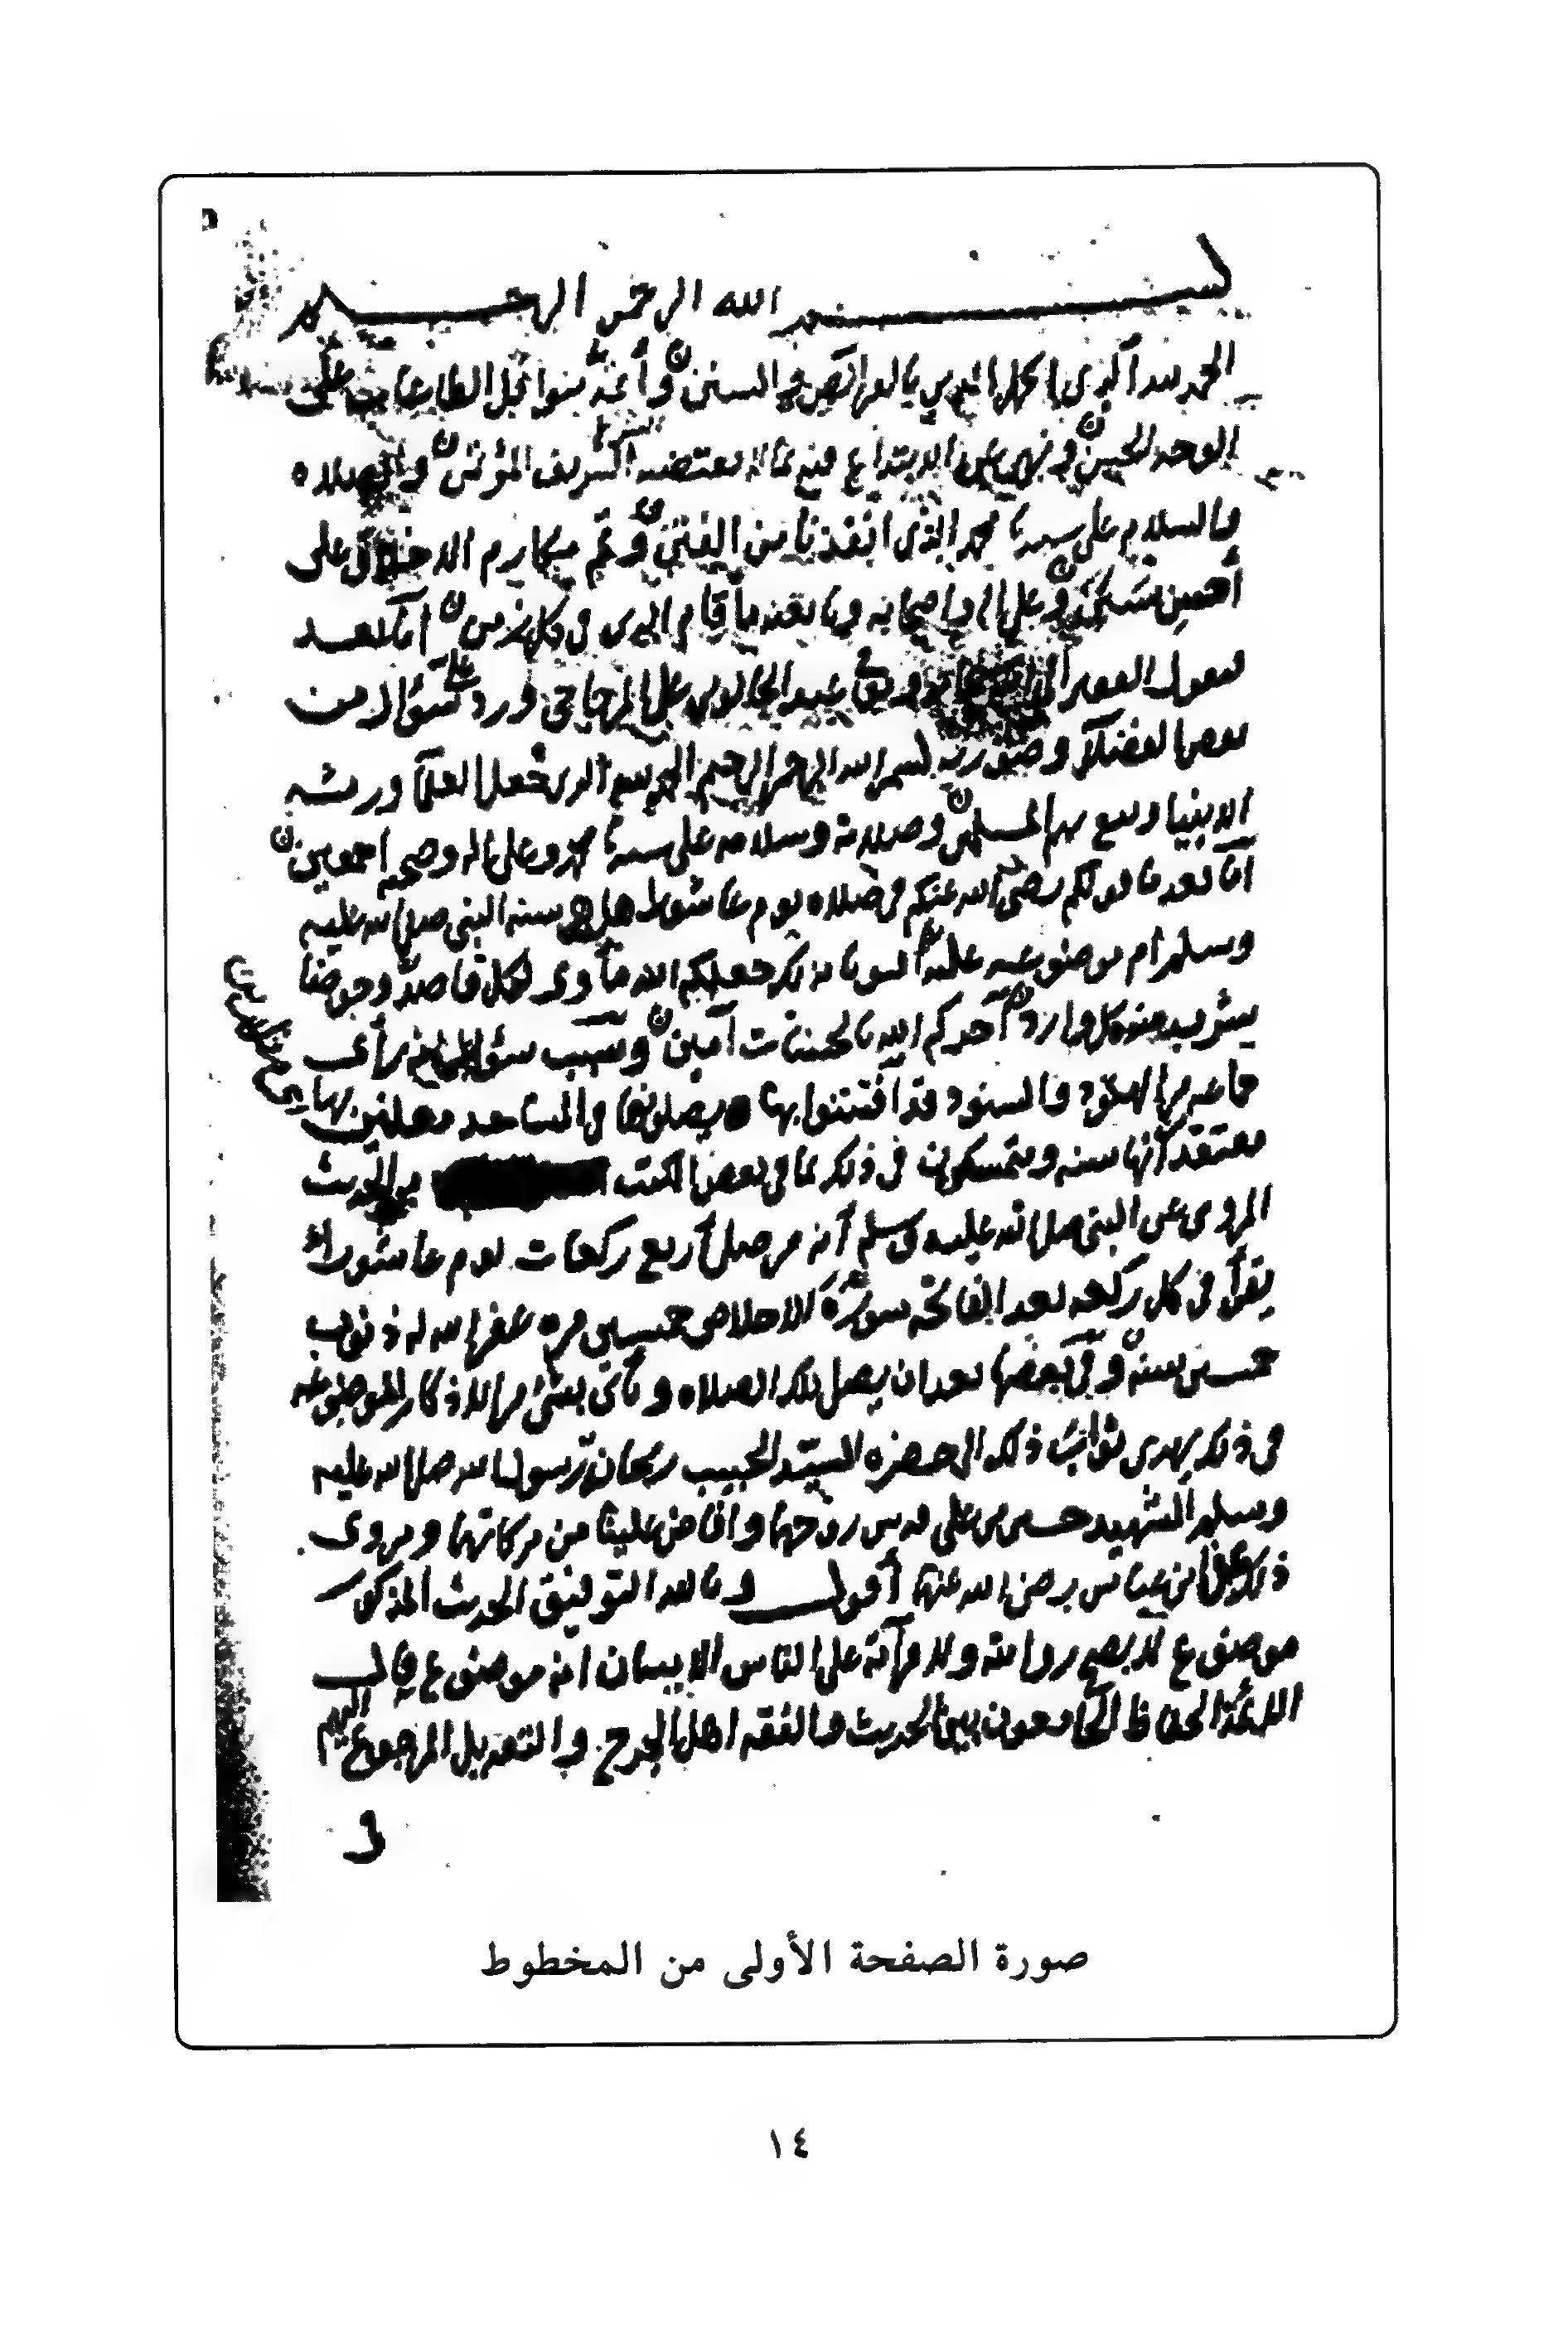 بسم الله الرحمن الرحيم
الحمد لله الذي اكمل الدين بالفرائض والسنن وأتمه بنوافل الطاعات على
الوجه الحسن ونهى عن الابتداع فيه بما لا يقتضيه الشريف المؤتمن والصلاه
والسلام على سيدنا محمد الذي انقذنا من الفتن وتمم مكارم الاخلاق على
أحسن سنن وعلى اله واصحابه وتابعيه ما قام الهدى في كل زمن أما بعد
فيقول الفقير الى عبد الخالق بن علي المزجاجي ورد علي سؤال من
بعض الفضلاء وصورته بسم الله الرحمن الرحيم الحمد لله الذي جعل العلماء ورثه
الانبيا ونفع بهم المسلمين وصلاته وسلامه على سيدنا محمد وعلى اله وصحبه اجمعين
أما بعد ما قولكم رضي الله عنكم في صلاه يوم عاشورا هل هي سنه النبي صلى الله عليه
وسلم ام موضوعه عليه أفتونا بذلك جعلكم الله مأوى لكل قاصد وحوضا
يشرب منه كل وارد أمدكم الله بالحسنات آمين وسبب سؤال رأى
جماعه من الهنود والسنود قد أفتتنوا بها ويصلونها في المساجد معلنين بها
معتقد أنها سنه ويتمسكون في ذلك بما في بعض الكتب من الحديث
المروي عن النبي صلى الله عليه وسلم أنه من صلى أربع ركعات يوم عاشوراء
يقرأ في كل ركعه بعد الفاتحه سورة الاخلاص خمسين مره غفر الله له ذنوب
خمسين سنه وفي بعضها بعد ان يصلي تلك الصلاه ويأتي بشئ من الاذكار الموضوعه
في ذلك يهدي ثواب ذلك الى حضره السيد الحبيب ريحان رسول الله صلى الله عليه
وسلم الشهيد حسين بن علي قدس روحهما وافاض علينا من بركاتهما ومروي
ذلك عن ابن عباس رضي الله عنهما أقول وبالله التوفيق الحديث المذكور
موضوع لا يصح روايته ولا قرآته على الناس الا ببيان انه موضوع قال
الائمة الحفاظ الجامعون بين الحديث والفقه اهل الجرح والتعديل المرجوع اليهم
صورة الصفحة الأولى من المخطوط
١٤